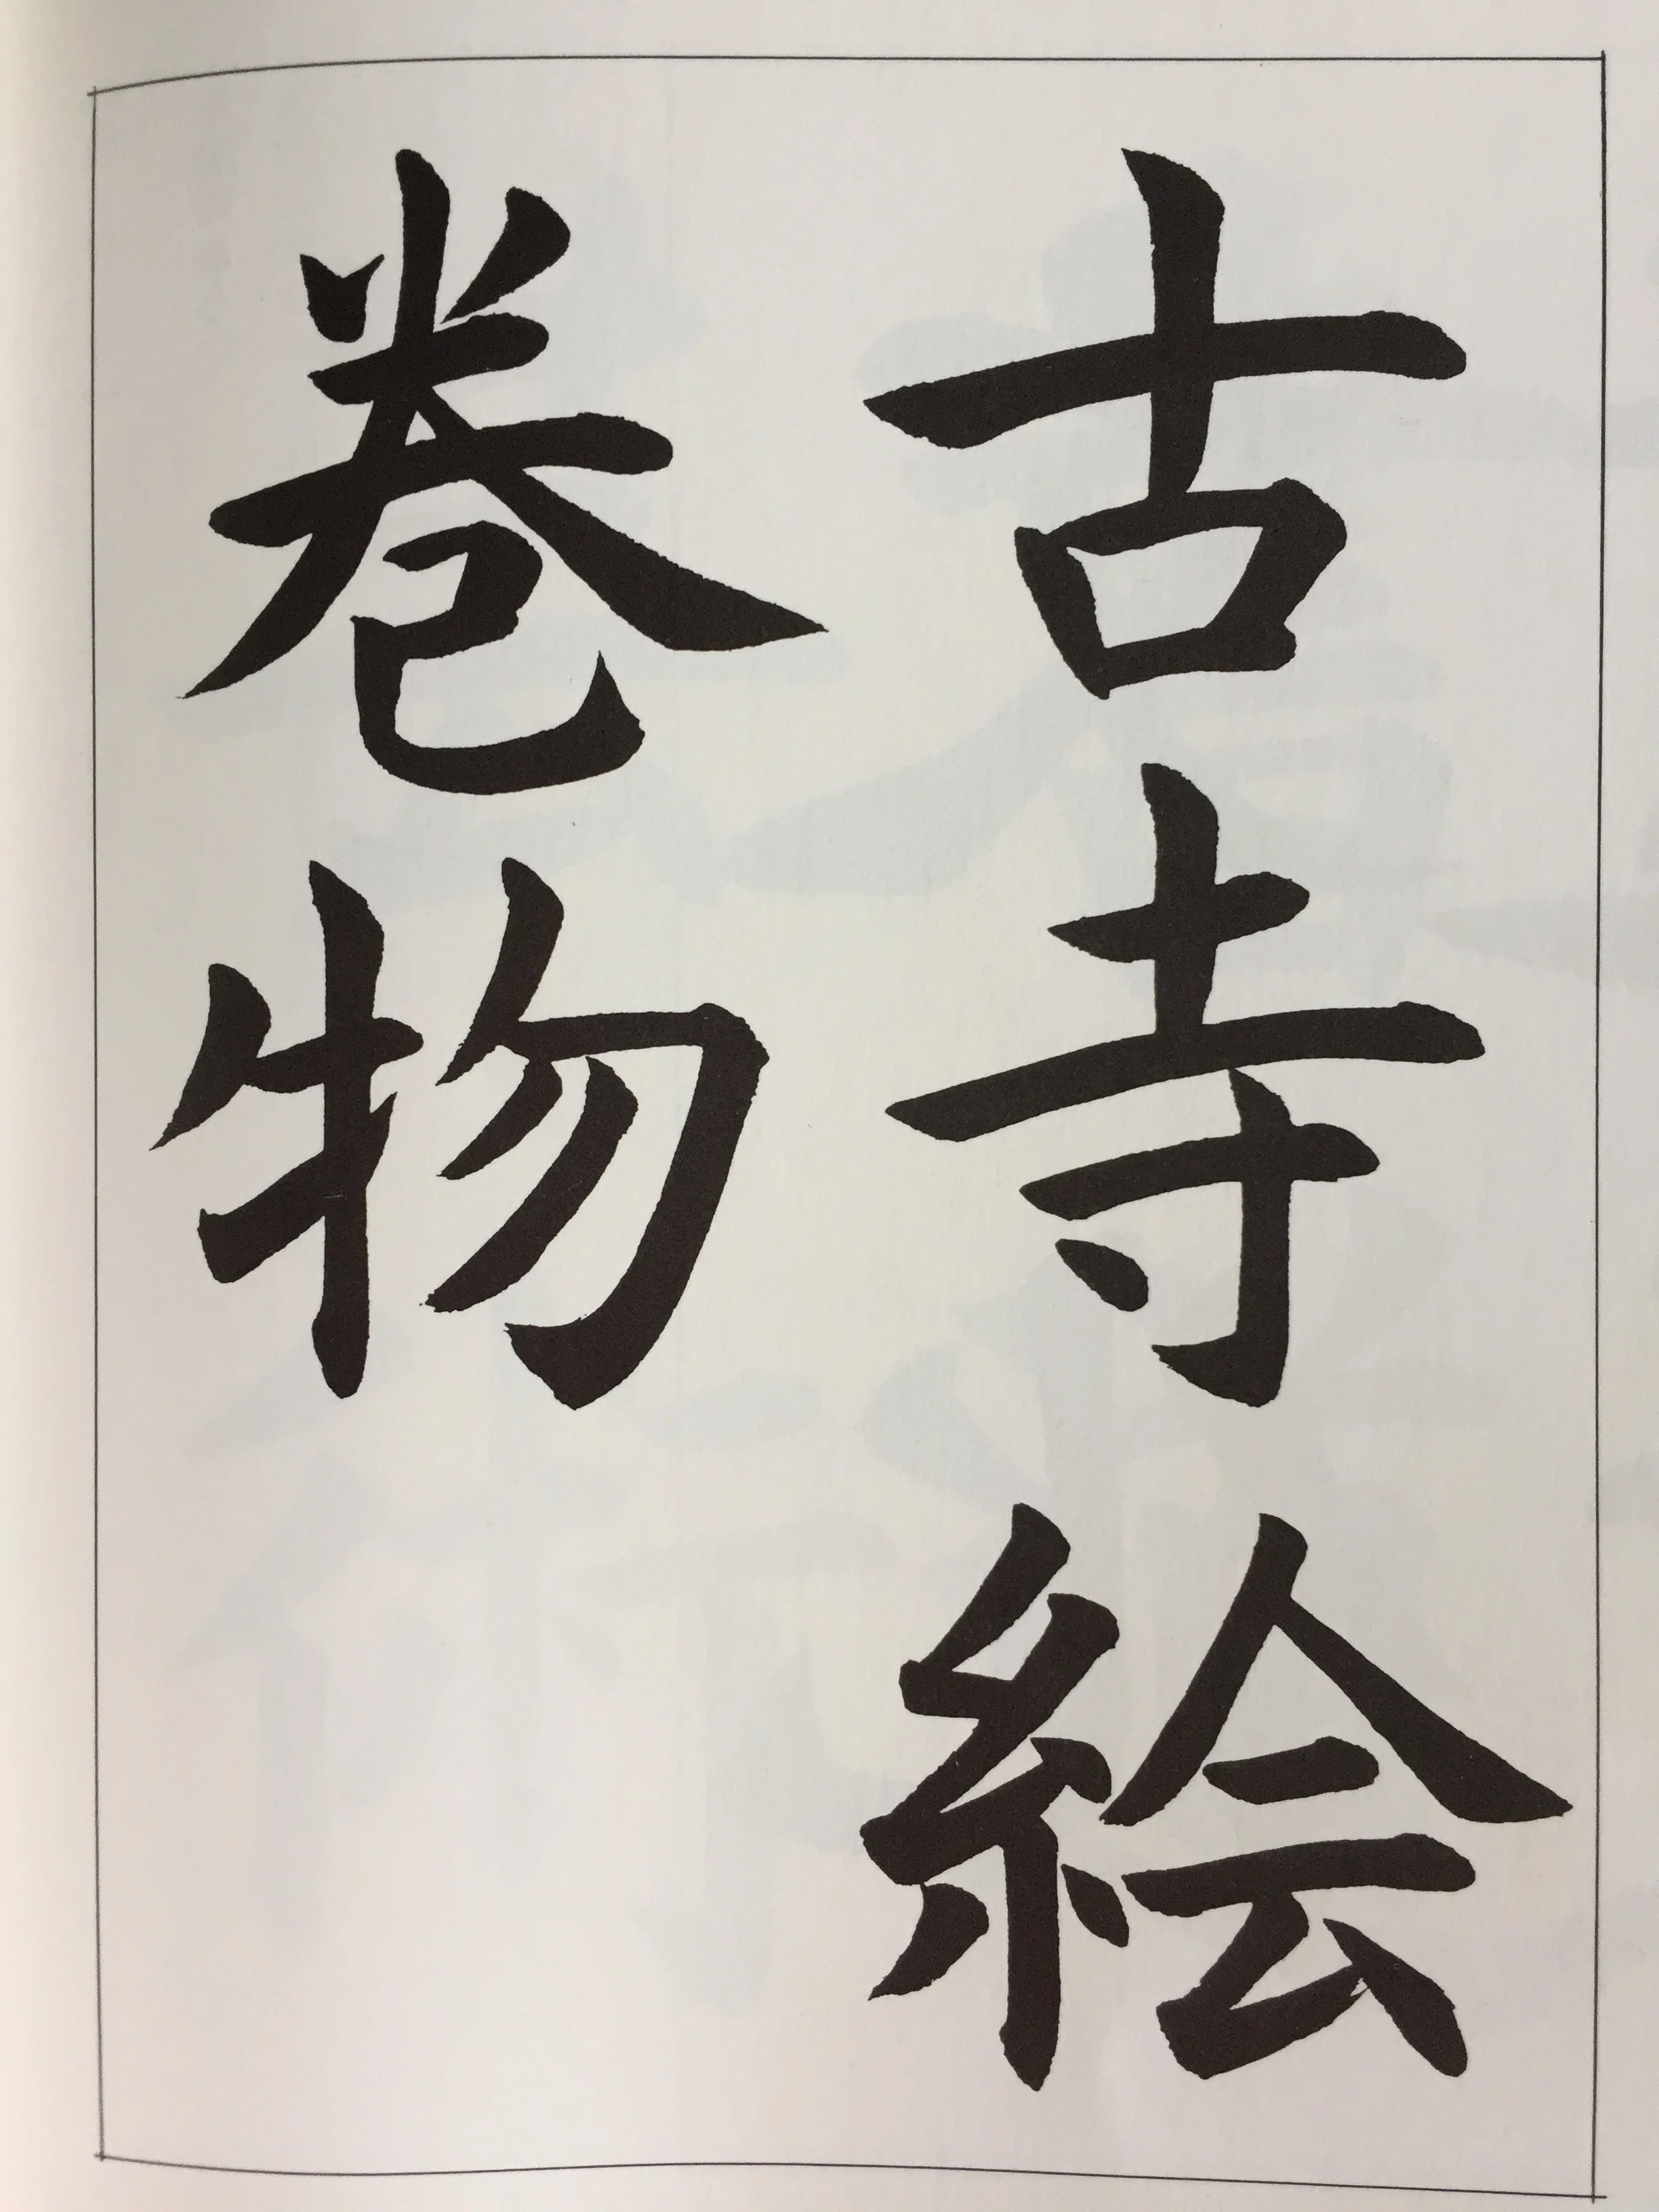 古寺絵
巻物